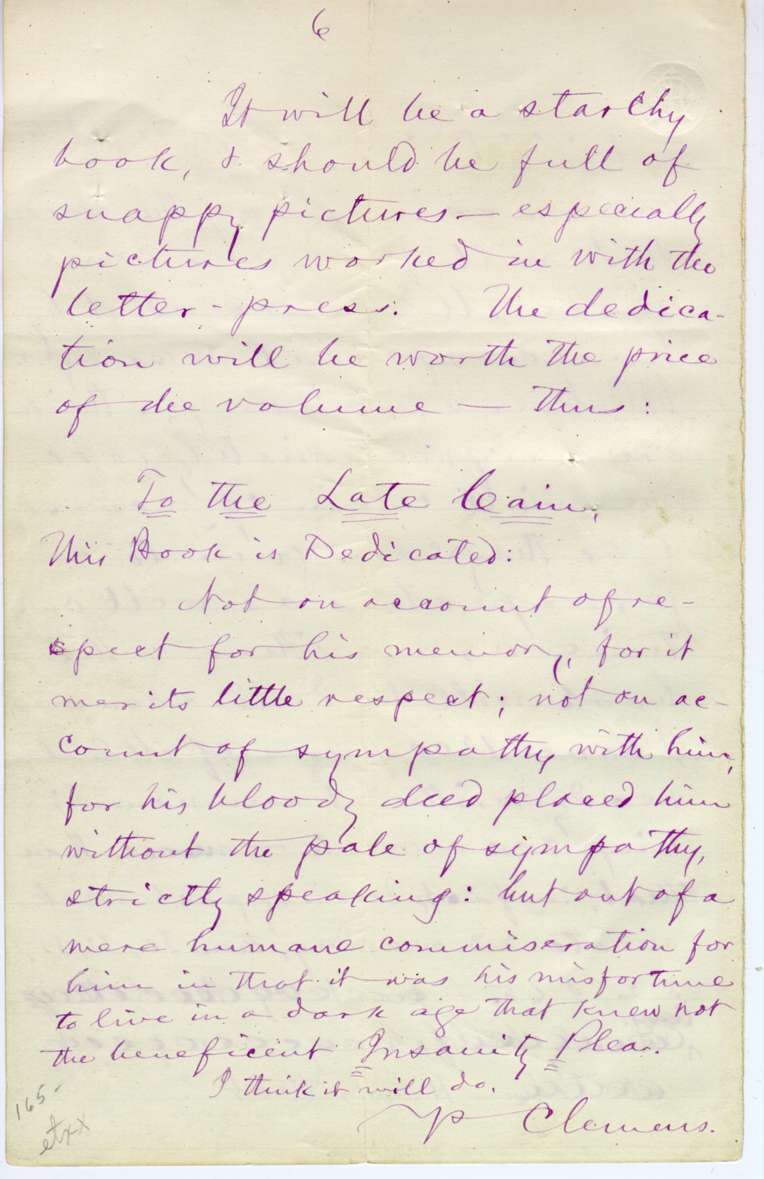 6
It will be a starchy
book, & should be full of
snappy pictures — especially
pictures worked in with the
letter-press. The dedica-
tion will be worth the price
of the volume — thus:
To the Late Cain,
This Book is Dedicated:
Not on account of re-
spect for his memory, for it
merits little respect; not on ac-
count of sympathy with him,
for his bloody deed placed him
without the pale of sympathy,
strictly speaking: but out of a
mere humane commiseration for
him in that it was his misfortune
to live in a dark age that knew not
the beneficent Insanity Plea.
I think it will do.
Clemens.
165-